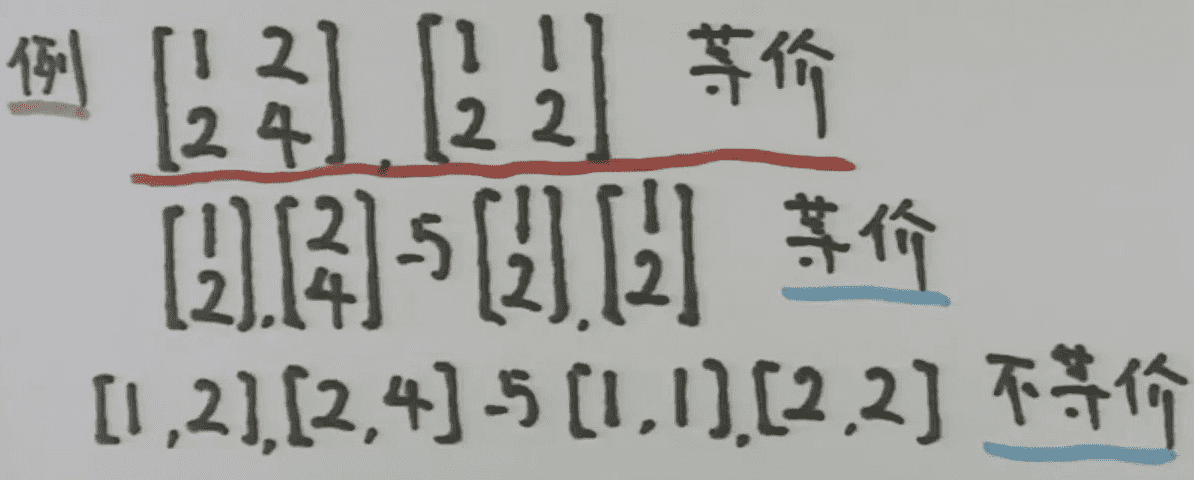 例 [1 2 2 4], [1 1 2 2] 等价
[1 2], [2 4] 与 [1 2], [1 2] 等价
[1, 2], [2, 4] 与 [1, 1], [2, 2] 不等价